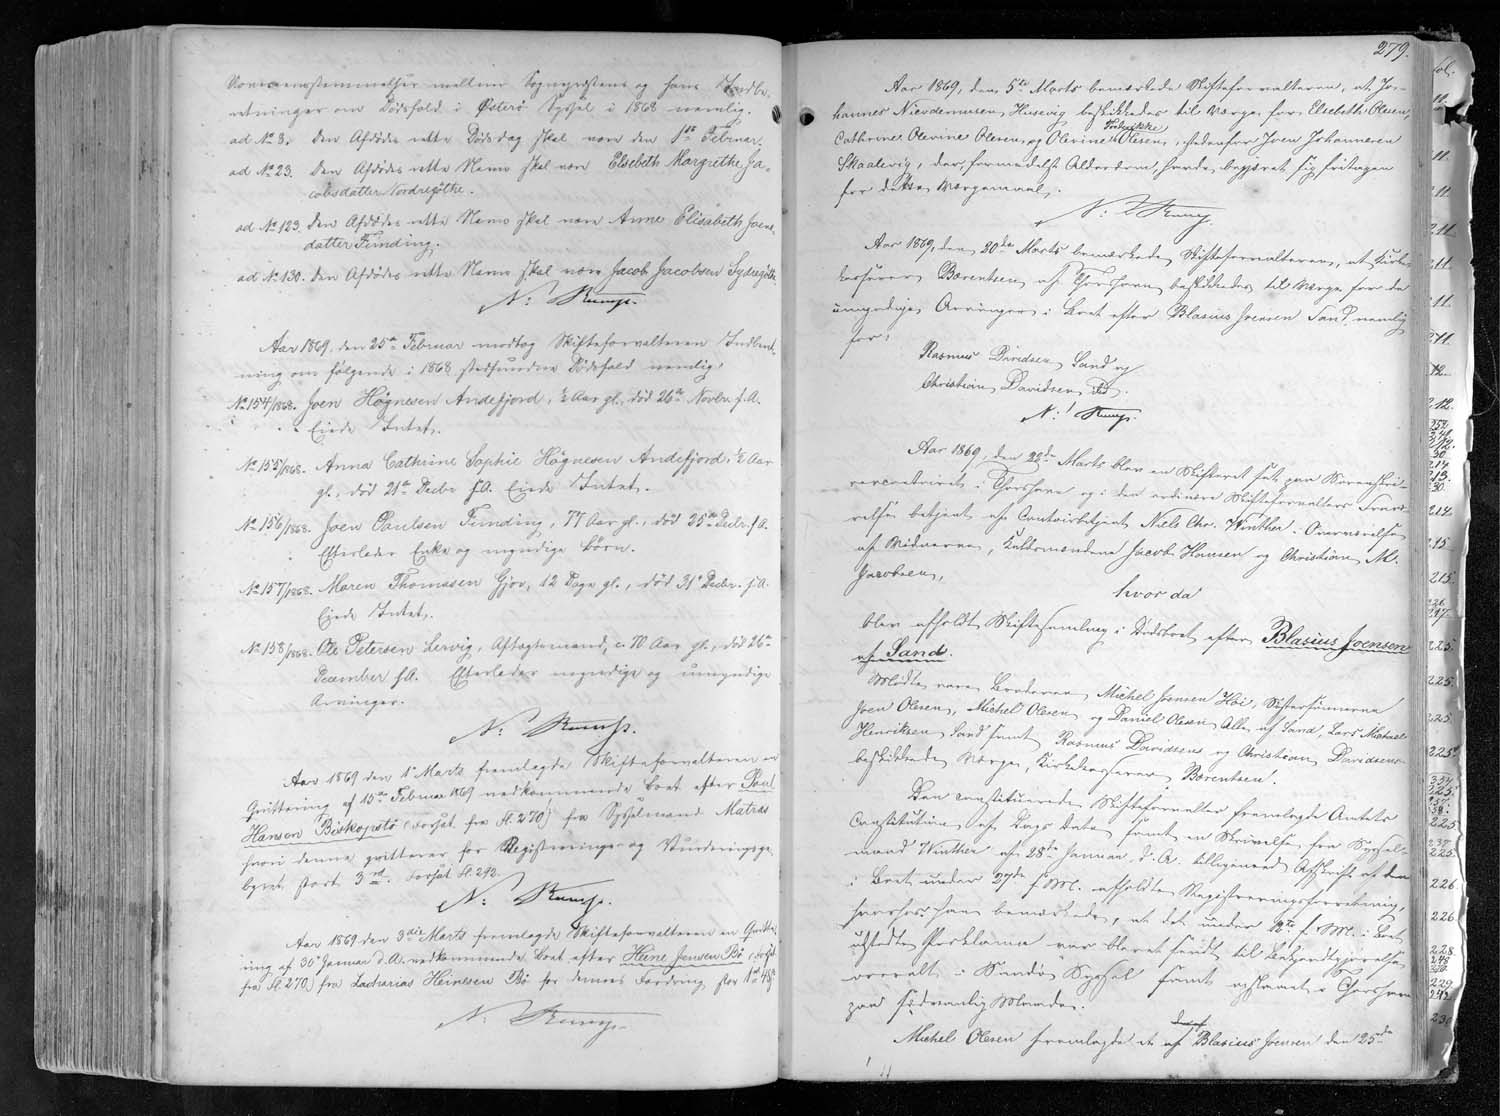 Overensstemmelser mellem Sognepræstens og hans Indbe-
retninger om Dødsfald i Østerø Syssel i 1868 nemlig.
ad No 3. den Afdødes rette Dødsdag skal være den 1ste Februar.
ad No 23. Den Afdødes rette Navn skal være Elsebeth Margrethe Ja-
cobsdatter Nordregøthe.
ad No 123. Den Afdødes rette Navn skal være Anne Elisabeth Joens-
datter Funding.
ad No 130. Den Afdødes rette Navn skal være Jacob Jacobsen Sydregøthe
N: Rump.
Aar 1869, den 25de Februar modtog Skifteforvalteren Indberet-
ning om følgende i 1868 stedfundne Dødsfald nemlig:
No 154/1868. Joen Högnesen Andefjord, ½ Aar gl., død 26de Novbr. f.A.
Eiede Intet.
No 155/1868. Anna Cathrine Sophie Högnesen Andefjord, ½ Aar
gl., død 21de Decbr. f.A. Eiede Intet.
No 156/1868. Joen Paulsen Funding, 77 Aar gl., død 25de Decbr. f.A.
Efterlader Enke og myndige Børn.
No 157/1868. Maren Thomasen Gjov, 12 Dage gl., død 31te Decbr. f.A.
Eiede Intet.
No 158/1868. Ole Petersen Lervig, Aftægtsmand, c. 70 Aar gl., død 26de
December f.A. Efterlader myndige og umyndige
Arvinger.
N: Rump.
Aar 1869 den 1ste Marts fremlagde Skifteforvalteren en
Qvittering af 15de Februar 1869 vedkommende Boet efter Poul
Hansen Biskopstø (Forsat fra fl. 270) fra Sysselmand Matras
hvori denne qvitterer for Registrerings og Vurderingsge-
byhr, stort 3 rd. Forsat fl. 292.
N: Rump.
Aar 1869 den 3die Marts fremlagde Skifteforvalteren en Qvitter-
ing af 30te Januar d.A. vedkommende Boet efter Heine Jensen Bø (Forsat
fra fl. 270) fra Zacharias Heinesen Bø for dennes Fordring, stor 1 rd 48 s
N: Rump.
279.
Aar 1869, den 5te Marts bemærkede Skifteforvalteren, at Jo-
hannes Nicodemusen Husevig beskikkedes til Værge for Elsebeth Olesen,
Cathrine Olevine Olesen, og Olevine Fredrikke Olesen, istedenfor Joen Johannesen
Skaalevig, der, formedelst Alderdom, havde begjæret sig fritagen
for dette Værgemaal.
N: Rump.
Aar 1869, den 20de Marts bemærkede Skifteforvalteren, at Kirke-
kasserer Bærentsen af Thorshavn beskikkedes til Værge for de
umyndige Arvinger i Boet efter Blasius Joensen Sand, nemlig
for:
Rasmus Davidsen Sand og
Christian Davidsen ibd.
N: Rump.
Aar 1869, den 22de Marts blev en Skifteret sat paa Sorenskri-
vercontoiret i Thorshavn og i den ordinære Skifteforvalters Fravæ-
relse betjent af Contoirbetjent Niels Chr. Winther. Overværelse
af Vidnerne, Kaldsmændene Jacob Hansen og Christian M.
Jacobsen,
hvor da
blev afholdt Skiftesamling i Dødsboet efter Blasius Joensen
af Sand.
Mødte vare Broderen Michel Joensen Höi, Søstersønnerne
Joen Olesen, Michel Olesen og Daniel Olesen Alle af Sand, Lars Michael
Henriksen Sand samt Rasmus Davidsens og Christian Davidsens
beskikkede Værge, Kirkekasserer Bærentsen.
Den constituerede Skifteforvalter fremlagde Amtets
Constitution af Dags Dato samt en Skrivelse fra Syssel-
mand Winther af 28de Januar d.A. tilligemed Afskrift af den
i Boet under 27de f.M. afholdte Registreringsforretning,
hvorhos han bemærkede, at det under 12te f.M. i Boet
udstedte Proklama var blevet sendt til Bekjendtgjørelse
overalt i Sandø Syssel samt opslaaet i Thorshavn
paa sædvanlig Maade.
Michel Olesen fremlagde et af Blasius Joensen den 25de